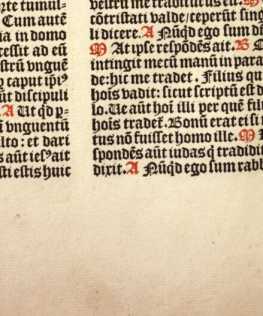 rte tumul-
. Cum autē
ia in domo
cessit ad eū
strū vngue
ꝙ caput ipiꝰ
ūt discipuli
A Ut qd p-
ū vnguentū
lto: et dari
s aūt iesꝰ ait
sti estis huic
vestrū me traditurus
cōtristati valde: ceperūt sing
li dicere. A Nūqd ego sum di
M At ipse respōdēs ait. B
intingit mecū manū in para
de: hic me tradet. Filius qu
hoīs vadit: sicut scriptū est d
lo. Ue aūt hoī illi per quē fili
hoīs tradet. Bonū erat ei si n
tus nō fuisset homo ille. M
spondēs aūt iudas q tradidit
dixit. A Nūqd ego sum rabb